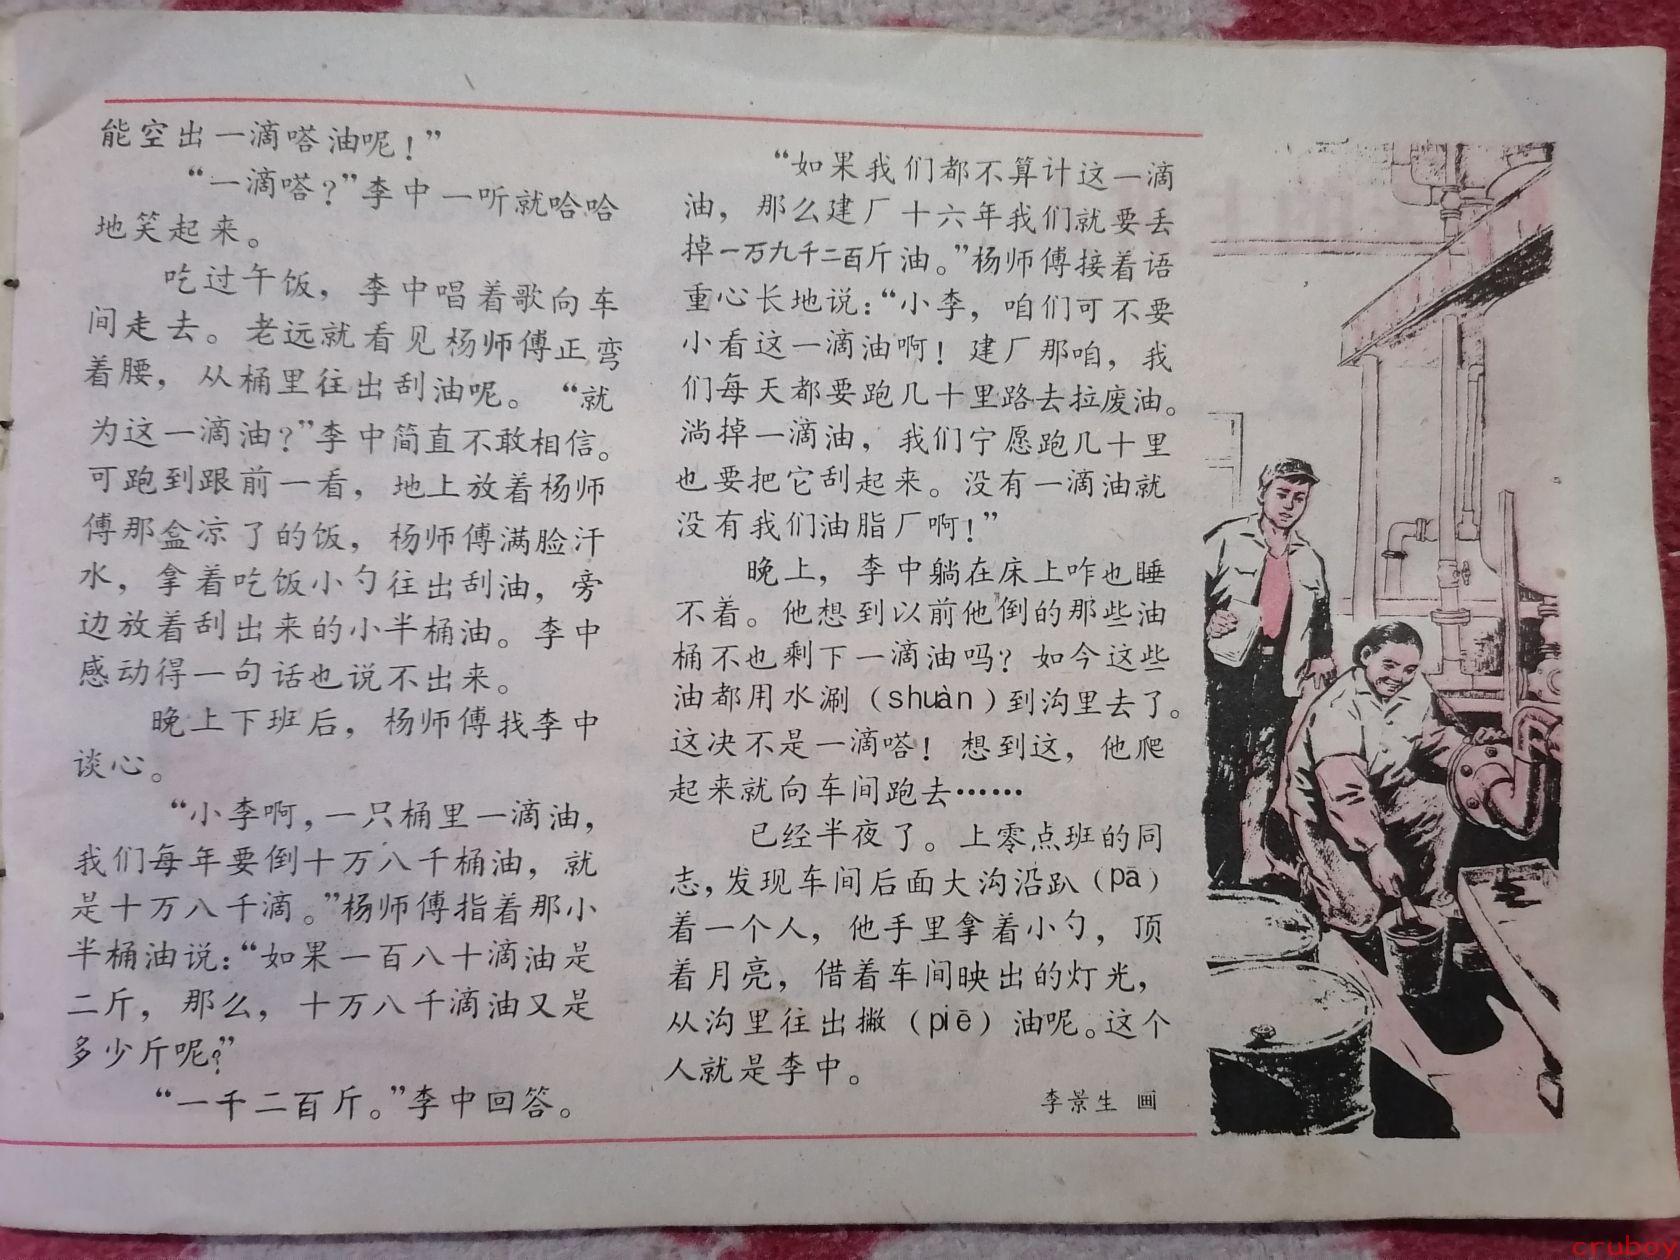 能空出一滴嗒油呢！”
“一滴嗒？”李中一听就哈哈
地笑起来。
吃过午饭，李中唱着歌向车
间走去。老远就看见杨师傅正弯
着腰，从桶里往出刮油呢。“就
为这一滴油？”李中简直不敢相信。
可跑到跟前一看，地上放着杨师
傅那盒凉了的饭，杨师傅满脸汗
水，拿着吃饭小勺往出刮油，旁
边放着刮出来的小半桶油。李中
感动得一句话也说不出来。
晚上下班后，杨师傅找李中
谈心。
“小李啊，一只桶里一滴油，
我们每年要倒十万八千桶油，就
是十万八千滴。”杨师傅指着那小
半桶油说：“如果一百八十滴油是
二斤，那么，十万八千滴油又是
多少斤呢？”
“一千二百斤。”李中回答。
“如果我们都不算计这一滴
油，那么建厂十六年我们就要丢
掉一万九千二百斤油。”杨师傅接着语
重心长地说：“小李，咱们可不要
小看这一滴油啊！建厂那咱，我
们每天都要跑几十里路去拉废油。
淌掉一滴油，我们宁愿跑几十里
也要把它刮起来。没有一滴油就
没有我们油脂厂啊！”
晚上，李中躺在床上咋也睡
不着。他想到以前他倒的那些油
桶不也剩下一滴油吗？如今这些
油都用水涮（shuàn）到沟里去了。
这决不是一滴嗒！想到这，他爬
起来就向车间跑去……
已经半夜了。上零点班的同
志，发现车间后面大沟沿趴（pā）
着一个人，他手里拿着小勺，顶
着月亮，借着车间映出的灯光，
从沟里往出撇（piē）油呢。这个
人就是李中。
李景生 画
crubay